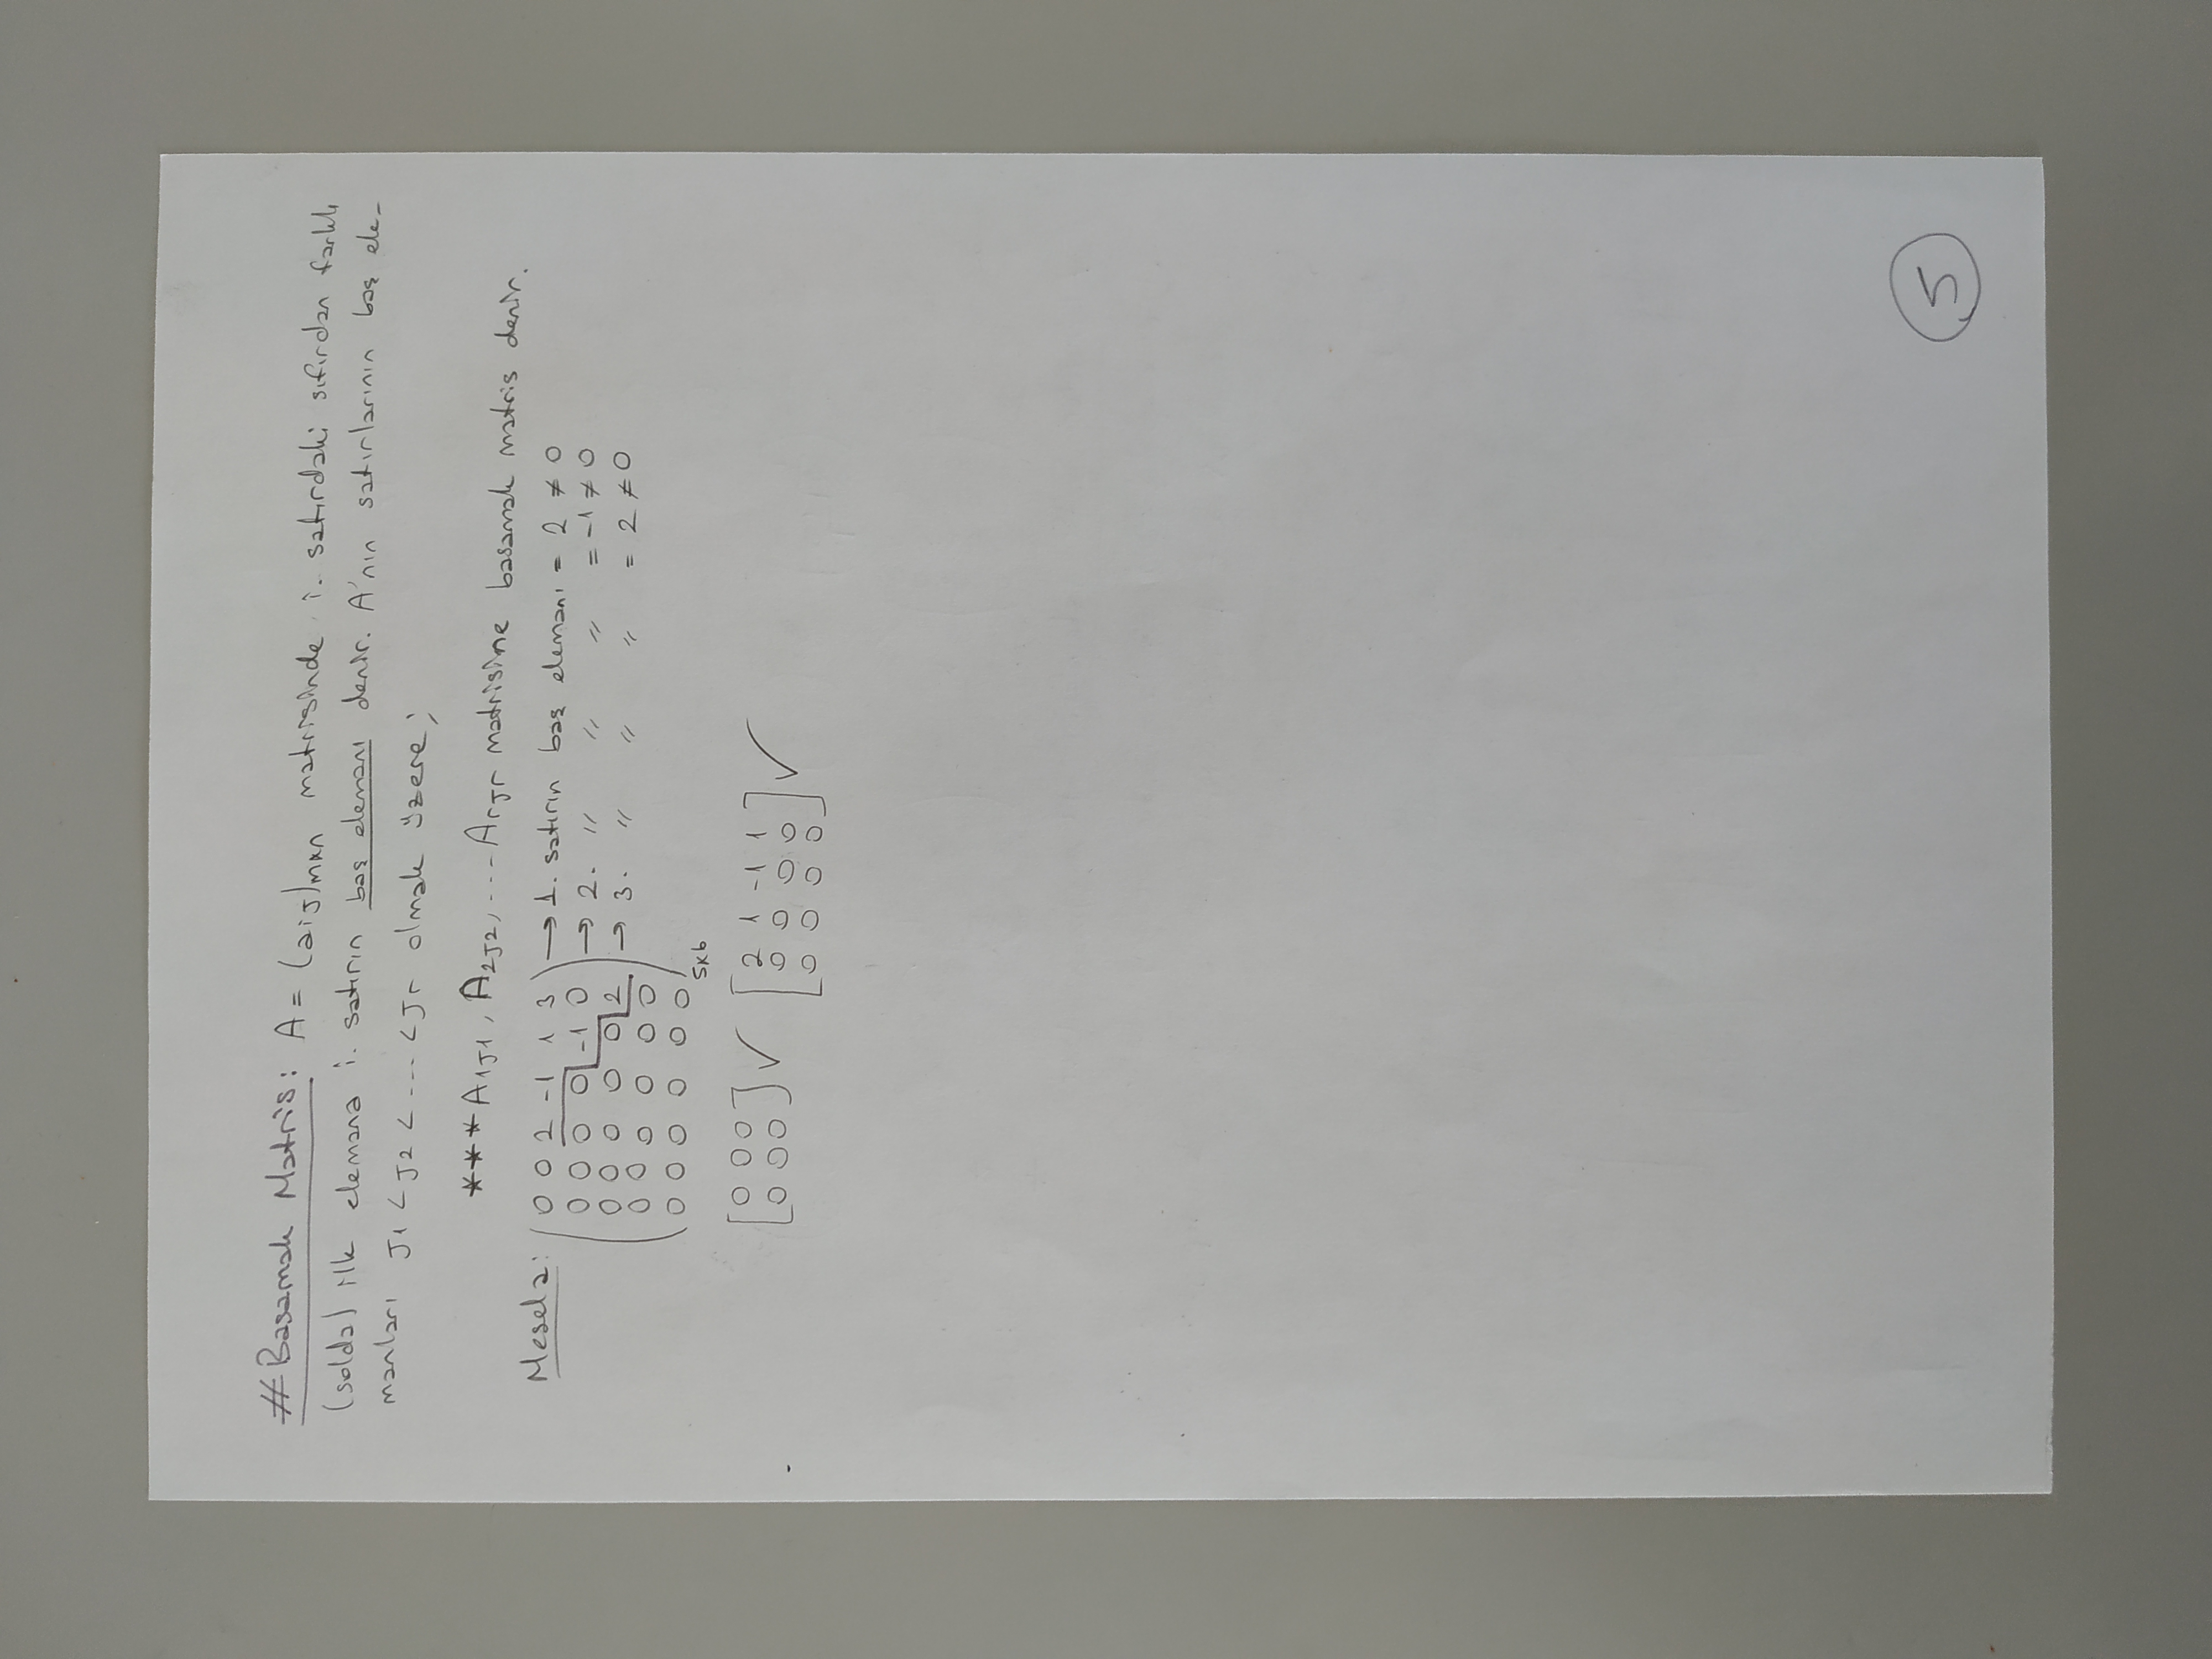 # Basamak Matris: A = (aij)mxn matrisinde i. satırdaki sıfırdan farklı
(solda) ilk elemana i. satırın baş elemanı denir. A'nın satırlarının baş ele-
manları J1 < J2 < ... < Jr olmak üzere;
*** A1J1, A2J2, ... ArJr matrisine basamak matris denir.
Mesela: ( 0 0 2 -1 1 3 ) → 1. satırın baş elemanı = 2 ≠ 0
0 0 0 0 -1 0 → 2. " " " = -1 ≠ 0
0 0 0 0 0 2 → 3. " " " = 2 ≠ 0
0 0 0 0 0 0
0 0 0 0 0 0 5x6
[ 0 0 0 ] ✓ [ 2 1 -1 1 ] ✓
0 0 0 0 0 0 0
0 0 0 0
5